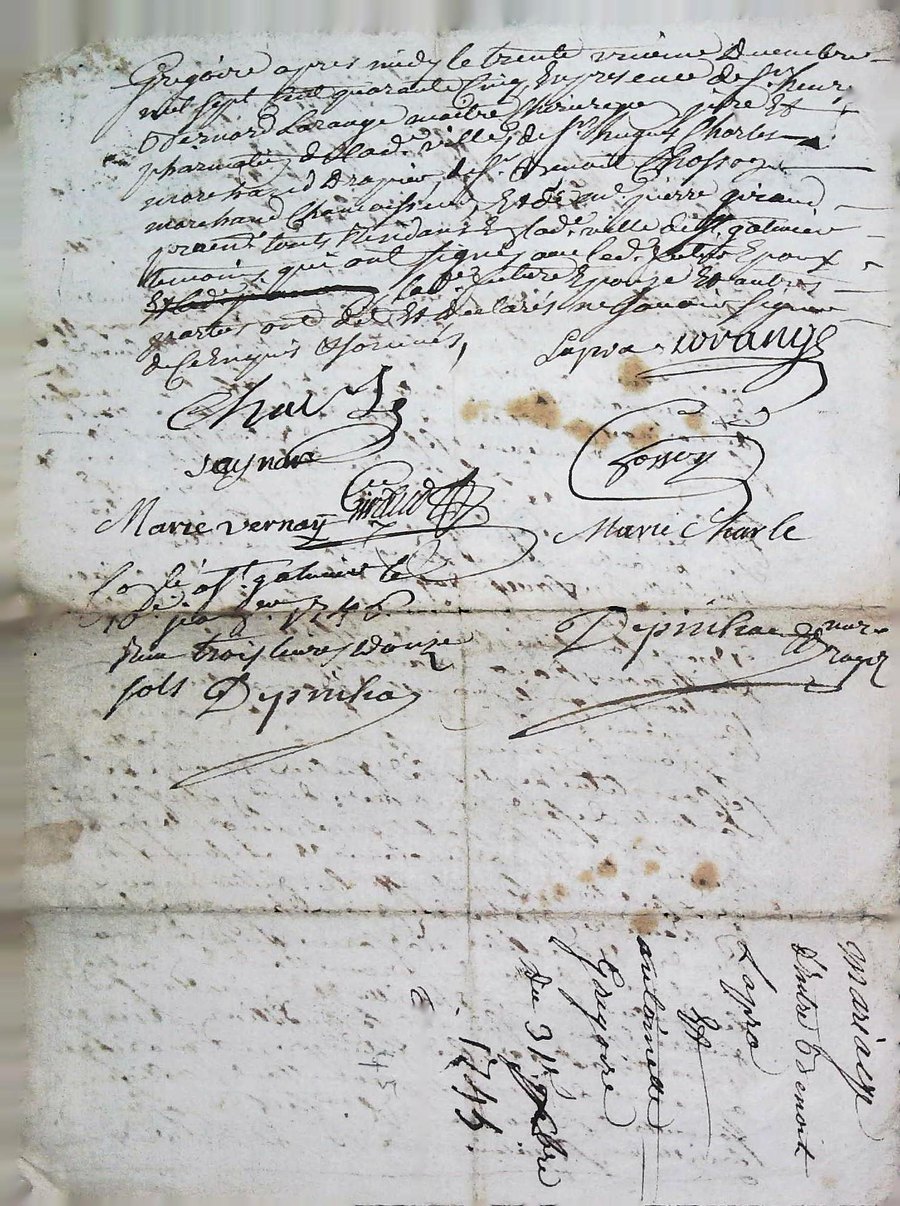 Gregoire apres midy le trente unieme Decembre
mil sept Cent quarante Cinq, En presence de Sr henry
Bernard Lorange maitre Chirurgien juré Et
pharmatien de lade. ville, de Sr. hugues Charles
marchand Drapier, de Sr. Benoit Chossoy
marchand Chamoisseur, Et de me. pierre giraud
praticien touts Residants En lade. ville de St. galmier
temoins qui ont signé avec led. futur Epoux
la de. future Epouze Et autres
parties ont dit Et declarés ne scavoir signer
de Ce Enquis Et sommés,
Lapra Lorange
Charle
Chossoy
Marie vernay Giraud
Marie Charle
a St. galmier le
10e. janvier 1746
Reçu trois livres douze
sols Depinha
Depinhac
mariage
d'entre Benoit
Lapra
Et
antoinette
Gregoire
du 31e Xbre
1745